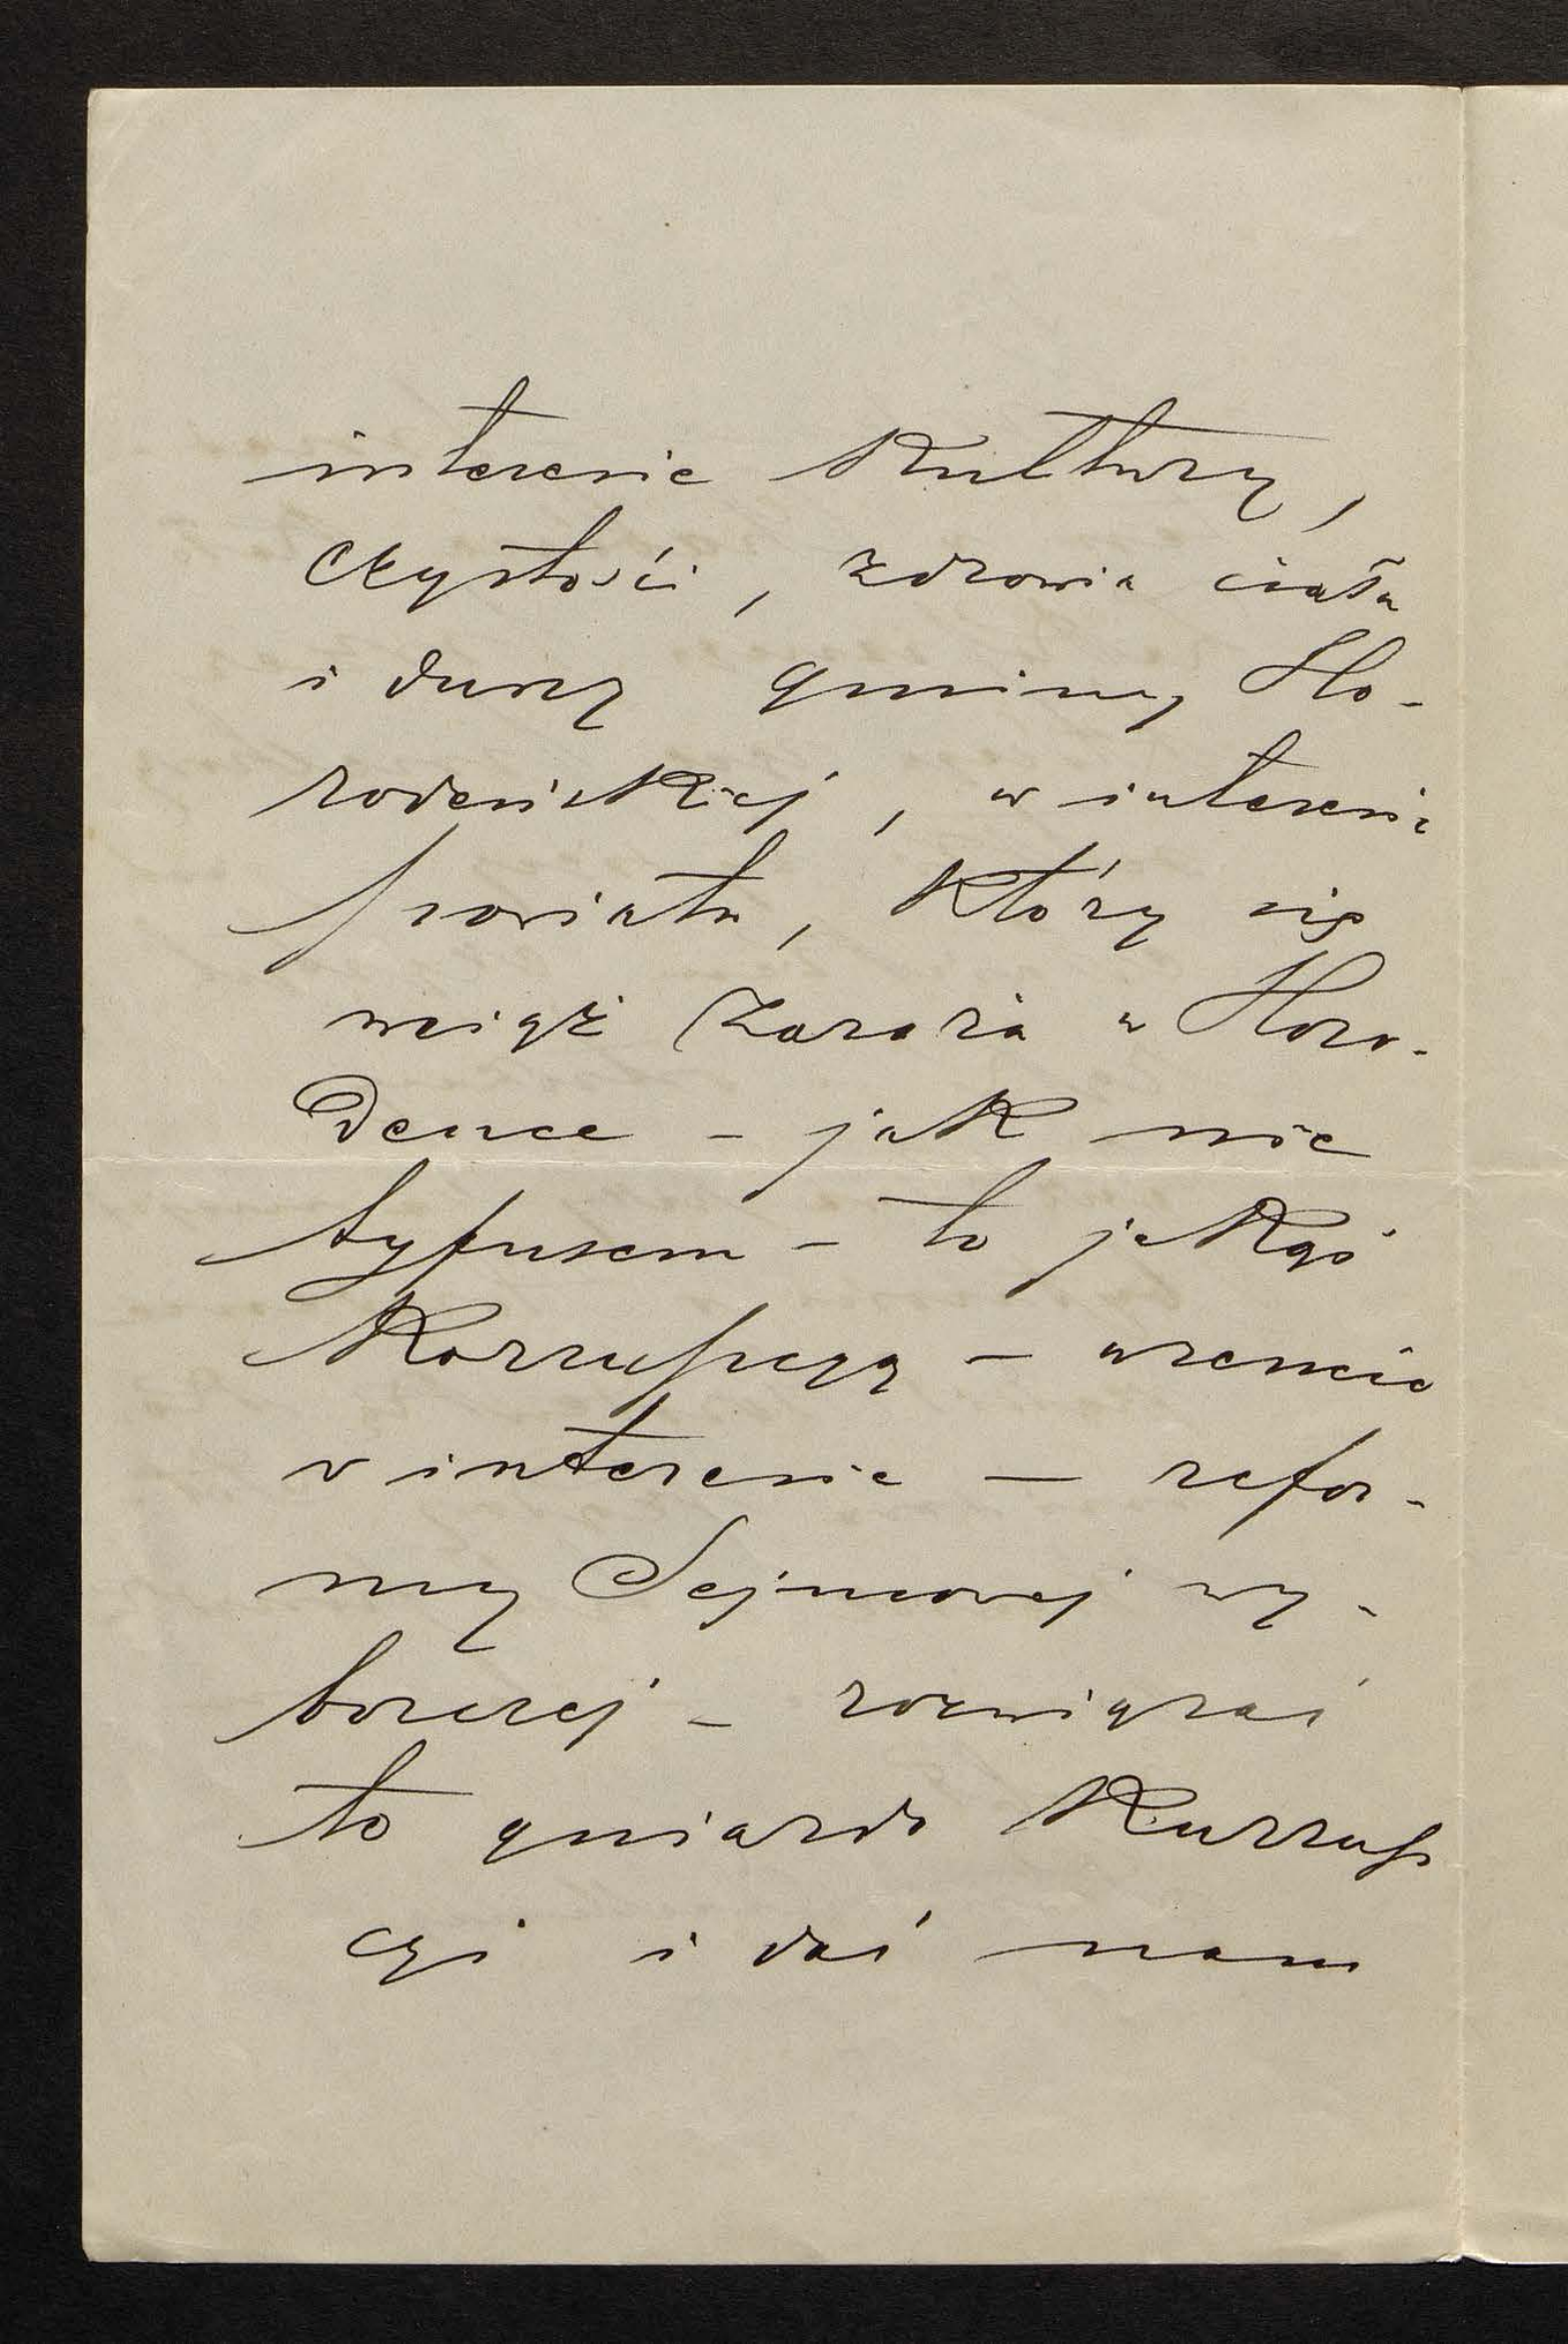 interesie Kultury,
Czystości, zdrowia ciała
i duszy gminy Ho-
rodeńskiej, w interesie
powiatu, który się
wciąż zaraża w Horo-
dence - jak nie
tyfusem - to jakąś
Korrupcyą - wreszcie
w interesie - refor-
my Sejmowej wy-
borczej - rozwiązać
to gniazdo Korrup
cyi i dać nam